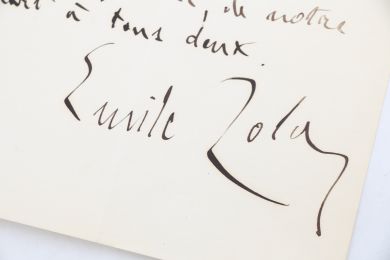 , de notre
à tous deux.
Emile Zola